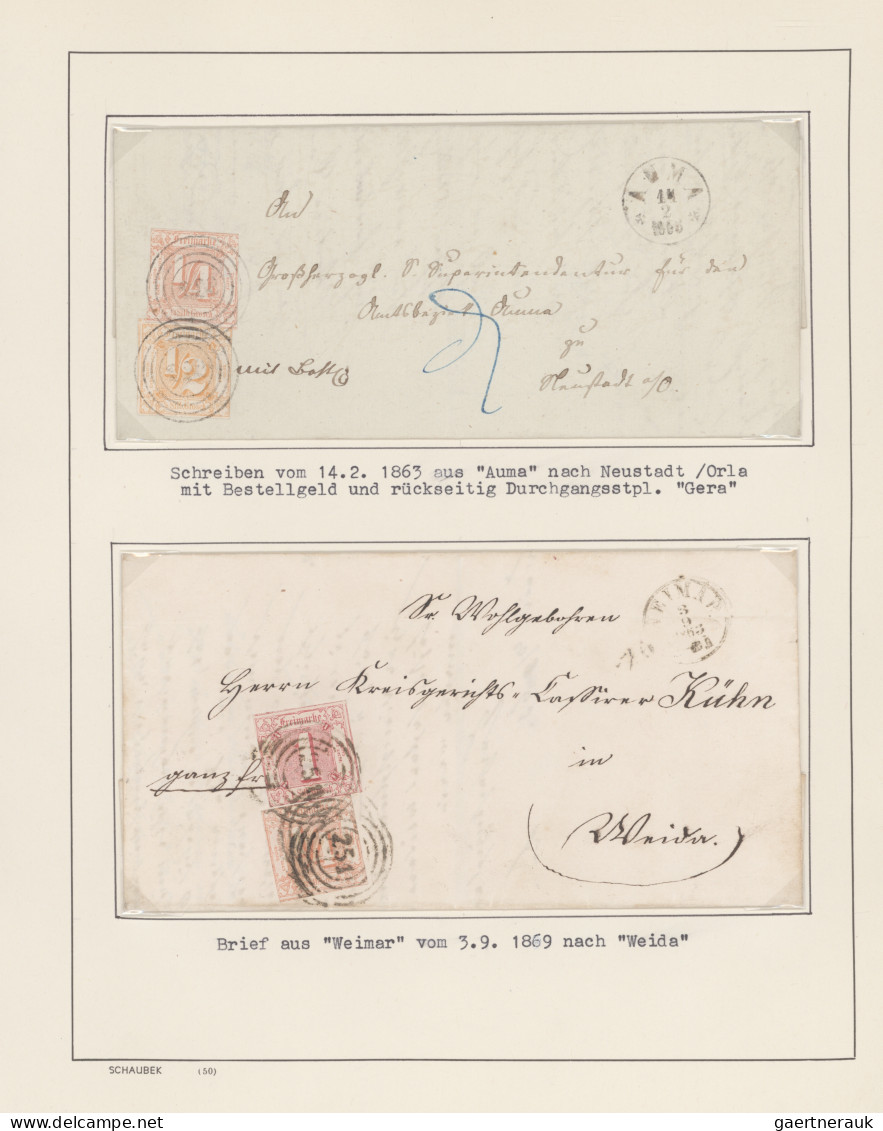 AUMA
14
2
1863
An
Freimarke
1/4
Großherzogl. S. Superintendentur für den
Amtsbezirk Auma
1/2
zu
mit Bestllg
Neustadt a/O.
Schreiben vom 14.2. 1863 aus "Auma" nach Neustadt /Orla
mit Bestellgeld und rückseitig Durchgangsstpl. "Gera"
WEIMAR
Sr. Wohlgebohren
Herrn Kreisgerichts-Cassirer Kühn
Freimarke
1
ganz fr
in
251
Weida.
Brief aus "Weimar" vom 3.9. 1869 nach "Weida"
SCHAUBEK (50)
gaertnerauk